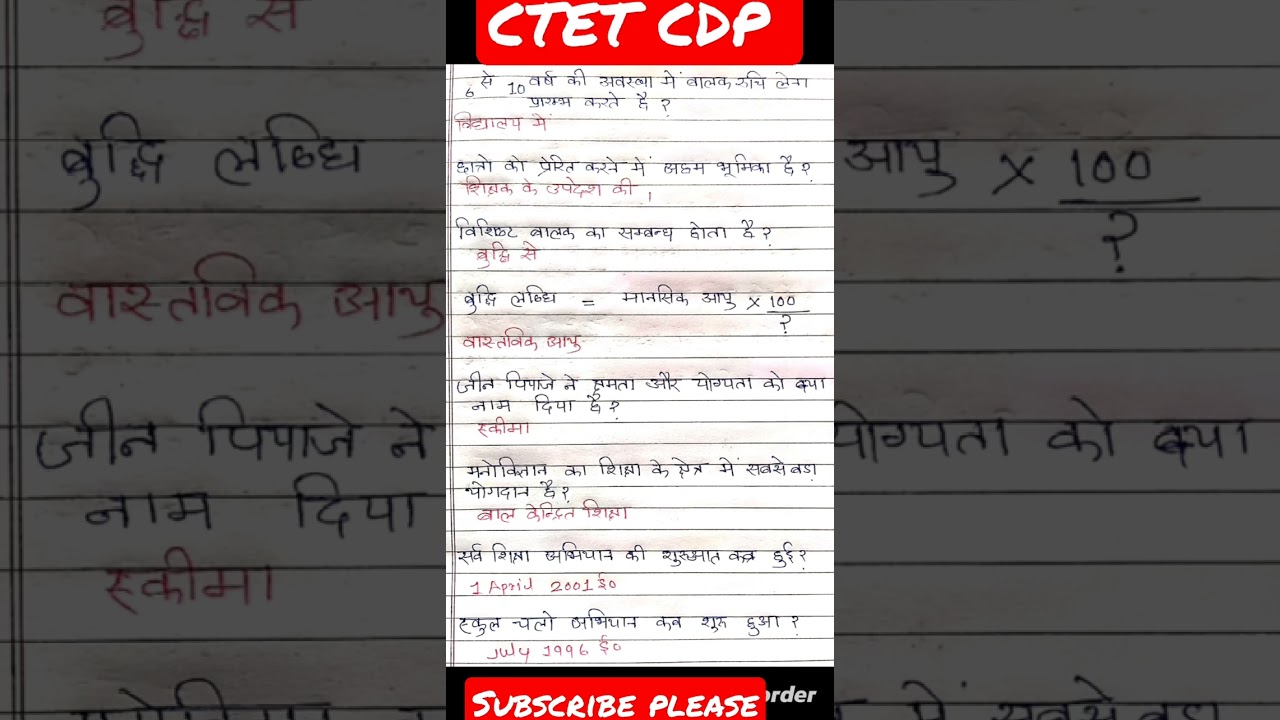 CTET CDP
6 से 10 वर्ष की अवस्था में बालक रुचि लेना
प्रारम्भ करते है ?
विद्यालय में
छात्रो को प्रेरित करने में अहम भूमिका है ?
शिक्षक के उपदेश की ।
विशिष्ट बालक का सम्बन्ध होता है ?
बुद्धि से
बुद्धि लब्धि = मानसिक आयु × 100
?
वास्तविक आयु
जीन पियाजे ने क्षमता और योग्यता को क्या
नाम दिया है ?
स्कीमा
मनोविज्ञान का शिक्षा के क्षेत्र में सबसे बड़ा
योगदान है ?
बाल केन्द्रित शिक्षा
सर्व शिक्षा अभियान की शुरुआत कब हुई ?
1 April 2001 ई०
स्कुल चलो अभियान कब शुरू हुआ ?
July 1996 ई०
SUBSCRIBE PLEASE
order
बुद्धि से
बुद्धि लब्धि
आयु × 100
?
वास्तविक आयु
जीन पियाजे ने
योग्यता को क्या
नाम दिया
स्कीमा
में सबसे बड़ा